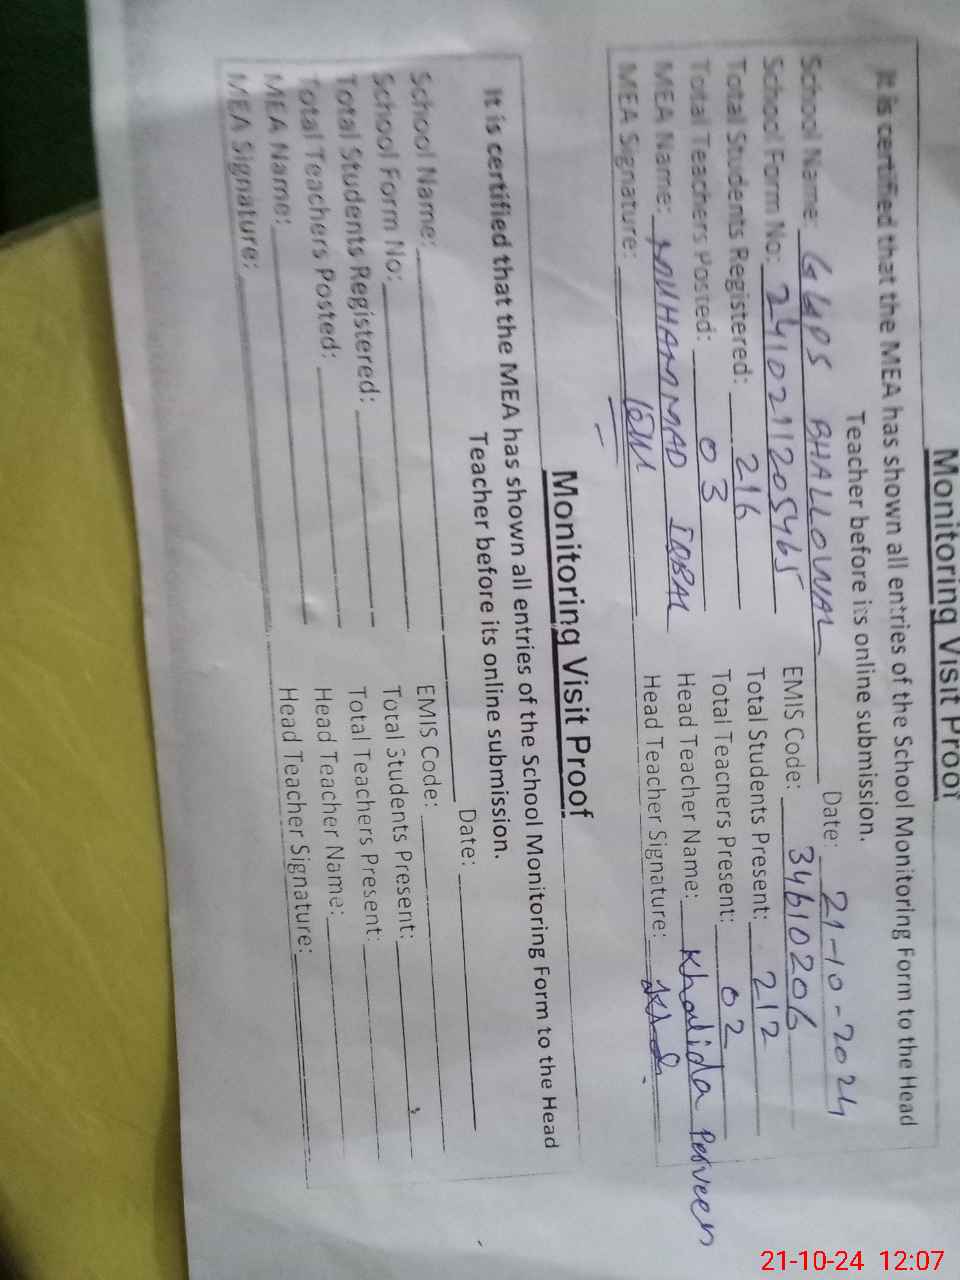 Monitoring Visit Proof
It is certified that the MEA has shown all entries of the School Monitoring Form to the Head
Teacher before its online submission.
School Name: GGPS BHALLOWAL Date: 21-10-2024
School Form No: 2410211205465 EMIS Code: 34610206
Total Students Registered: 216 Total Students Present: 212
Total Teachers Posted: 03 Total Teachers Present: 02
MEA Name: MUHAMMAD IQBAL Head Teacher Name: Khalida Perveen
MEA Signature: Head Teacher Signature:
Monitoring Visit Proof
It is certified that the MEA has shown all entries of the School Monitoring Form to the Head
Teacher before its online submission.
School Name: Date:
School Form No: EMIS Code:
Total Students Registered: Total Students Present:
Total Teachers Posted: Total Teachers Present:
MEA Name: Head Teacher Name:
MEA Signature: Head Teacher Signature:
21-10-24 12:07